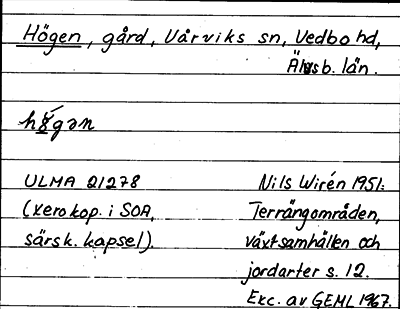 Högen, gård, Vårviks sn, Vedbo hd,
Älvsb. län.
ULMA 21278
(xerokop. i SOA,
särsk. kapsel).
Nils Wirén 1951:
Terrängområden,
växtsamhällen och
jordarter s. 12.
Exc. av GEML 1967.